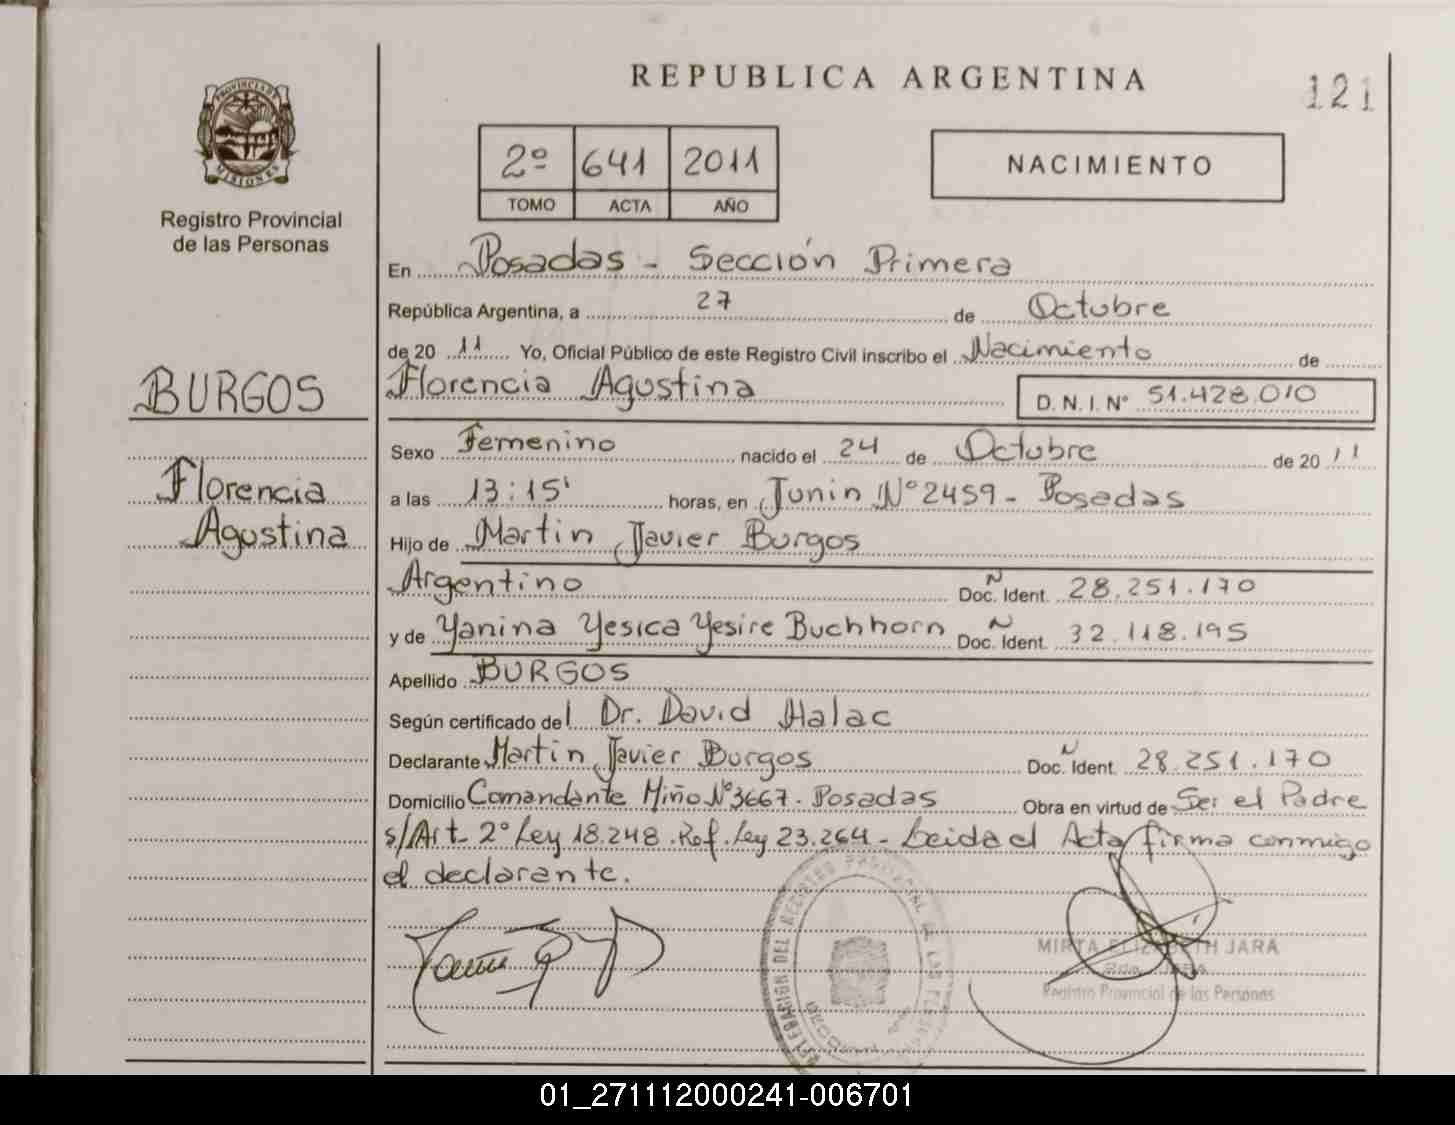 REPUBLICA ARGENTINA
121
PROVINCIA DE
MISIONES
Registro Provincial
de las Personas
2º 641 2011
TOMO ACTA AÑO
NACIMIENTO
En Posadas - Sección Primera
República Argentina, a 27 de Octubre
de 20 11 Yo, Oficial Público de este Registro Civil inscribo el Nacimiento de
BURGOS
Florencia Agustina D. N. I. Nº 51.428.010
Sexo Femenino nacido el 24 de Octubre de 20 11
Florencia
a las 13:15' horas, en Junin Nº 2459 - Posadas
Agustina
Hijo de Martin Javier Burgos
Argentino Doc. Ident. 28.251.170
y de Yanina Yesica Yesire Buchhorn Doc. Ident. 32.118.195
Apellido BURGOS
Según certificado del Dr. David Halac
Declarante Martin Javier Burgos Doc. Ident. 28.251.170
Domicilio Comandante Miño Nº 3667. Posadas Obra en virtud de Ser el Padre
s/Art 2º Ley 18.248. Ref. Ley 23.264 - Leida el Acta firma conmigo
el declarante.
MIRTA ELIZABETH JARA
Registro Provincial de las Personas
01_271112000241-006701